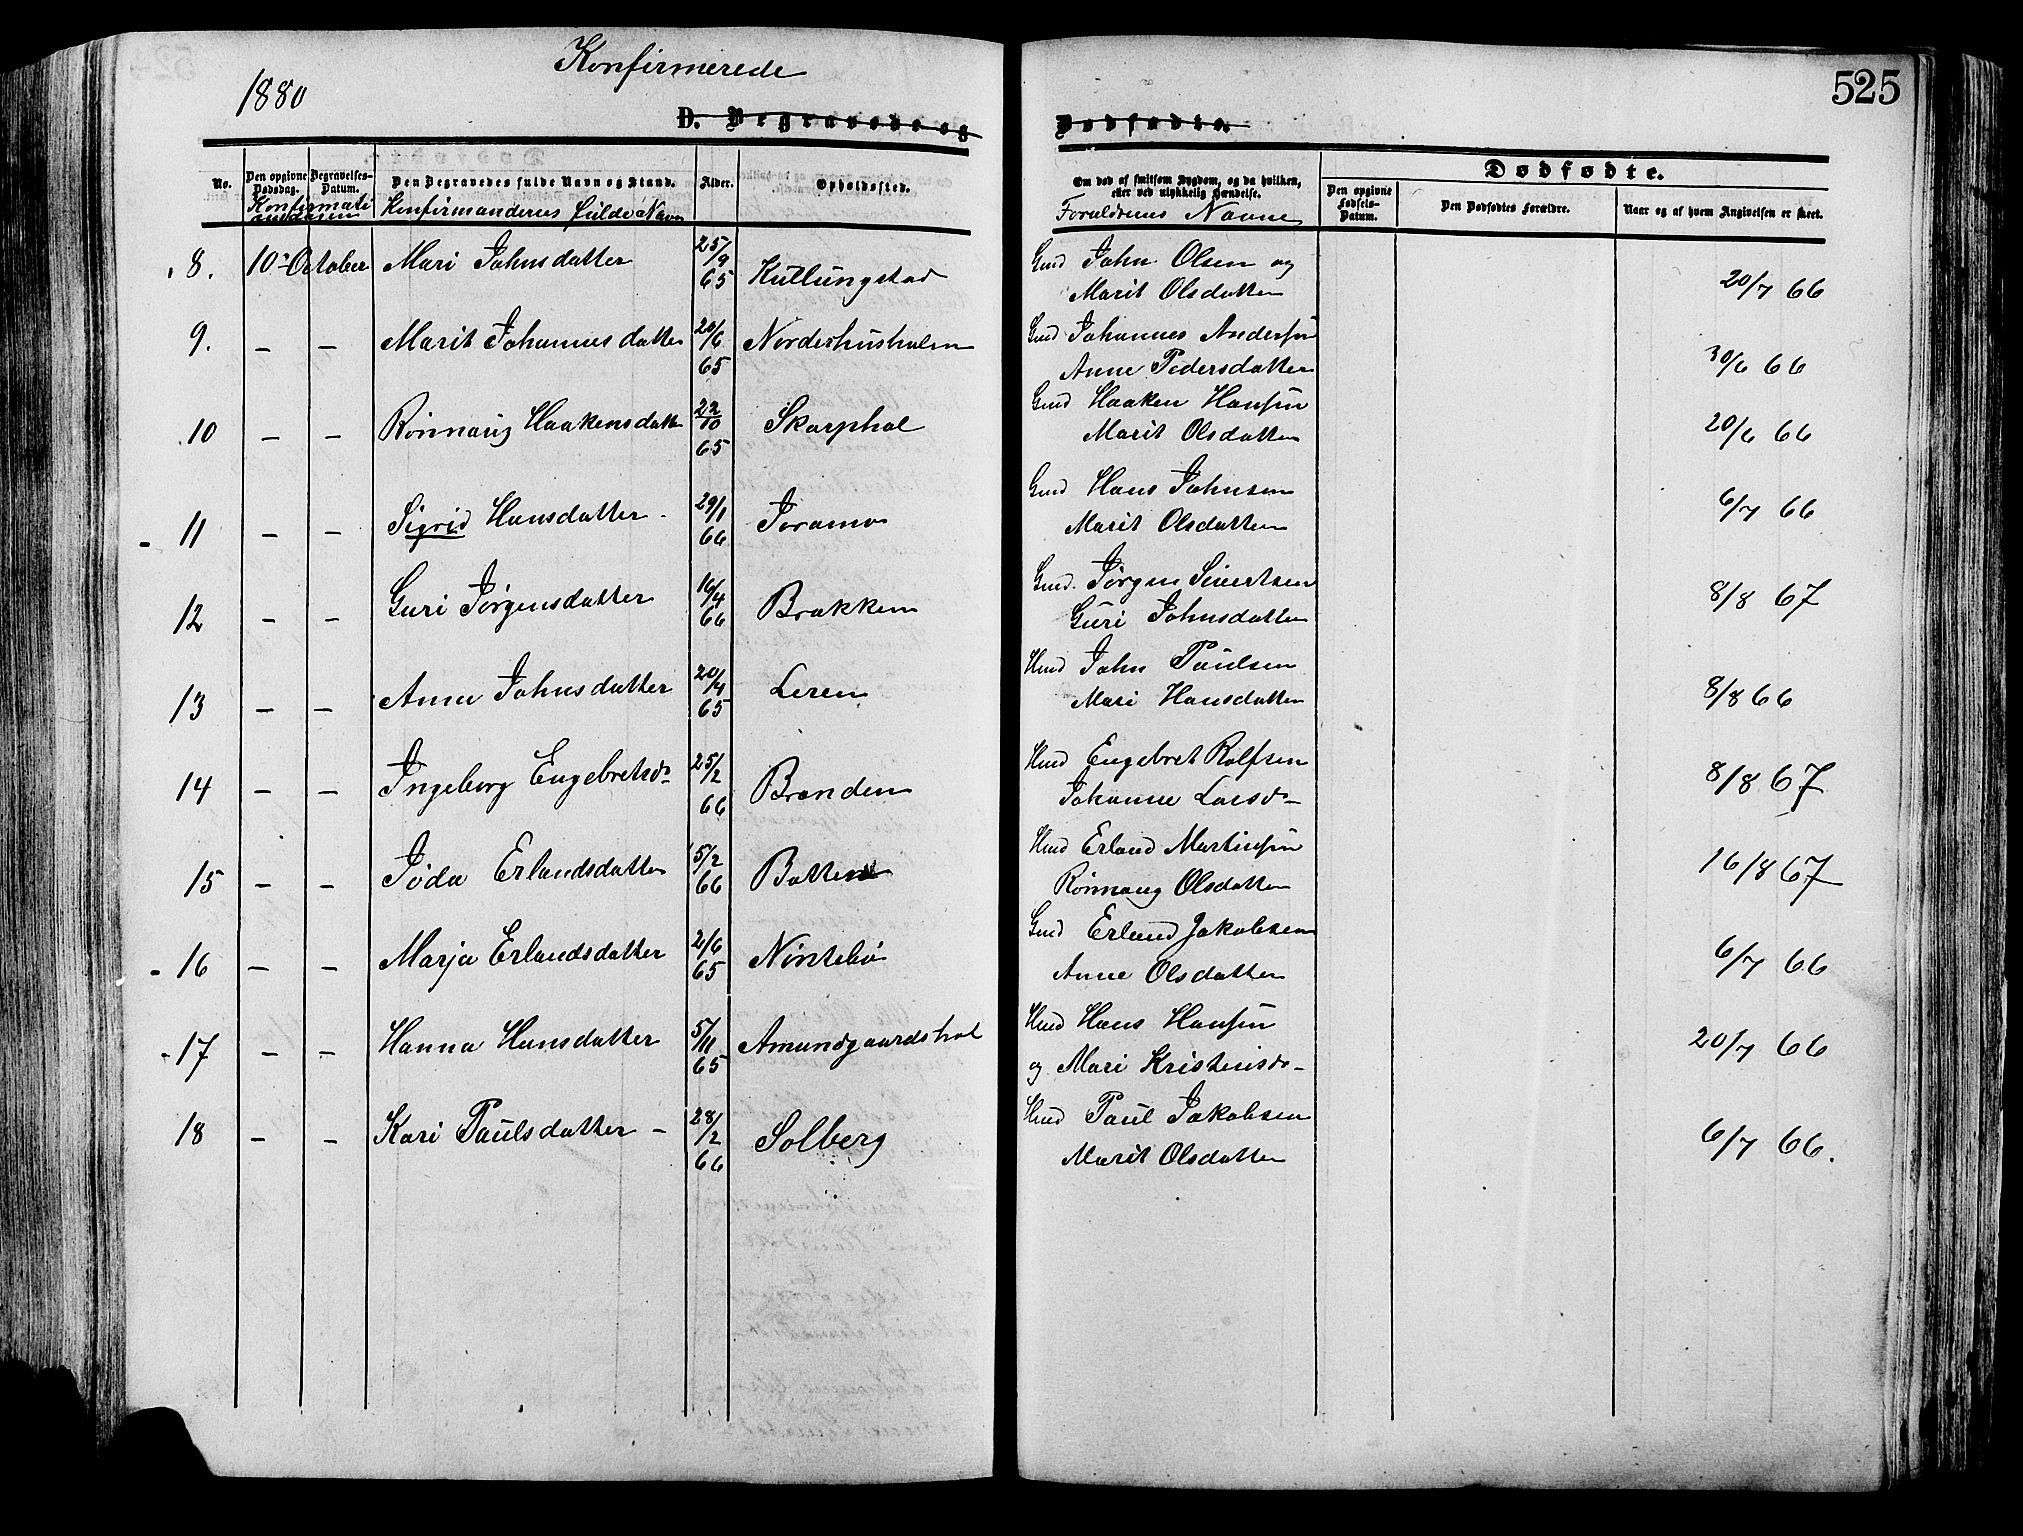 Konfirmerede
1880
525
D. Begravede og Dødfødte.
Dødfødte.
No. Den opgivne Dødsdag. Begravelses-Datum. Den Begravedes fulde Navn og Stand. Alder. Opholdssted. Om død af smitsom Sygdom, og da hvilken, eller ved ulykkelig Hændelse. Den opgivne Fødsels-Datum. Den Dødfødtes Forældre. Naar og af hvem Angivelsen er skeet.
Konfirmati Konfirmandernes fulde Navn Forældrenes Navne
8. 10de October Mari Johnsdatter 25/9 65 Kullungstad Gmd John Olsen og
Marit Olsdatter 20/7 66
9. – – Marit Johannesdatter 20/6 65 Norderhusholm Gmd Johannes Andersen
Anne Pedersdatter 30/6 66
10 – – Rønnaug Haakensdatter 22/10 65 Skarphol Gmd Haaken Hansen
Marit Olsdatter 20/6 66
11 – – Sigrid Hansdatter 29/1 66 Joramo Gmd Hans Johnsen
Marit Olsdatter 6/7 66
12 – – Guri Jørgensdatter 16/4 66 Brækken Gmd. Jørgen Sivertsen
Guri Johnsdatter 8/8 67
13 – – Anne Johnsdatter 20/4 65 Leren Hmd John Paulsen
Mari Hansdatter 8/8 66
14 – – Ingeborg Engebretsd– 25/2 66 Brænden Hmd Engebret Rolfsen
Johanne Larsd– 8/8 67
15 – – Jøda Erlandsdatter 5/2 66 Botten Hmd Erland Martinsen
Rønnaug Olsdatter 16/8 67
16 – – Marja Erlandsdatter 2/6 65 Nørstebø Gmd Erland Jakobsen
Anne Olsdatter 6/7 66
17 – – Hanna Hansdatter 5/11 65 Amundgaardshol Hmd Hans Hansen
og Mari Kristensd– 20/7 66
18 – – Kari Paulsdatter – 28/2 66 Solberg Hmd Paul Jakobsen
Marit Olsdatter 6/7 66.